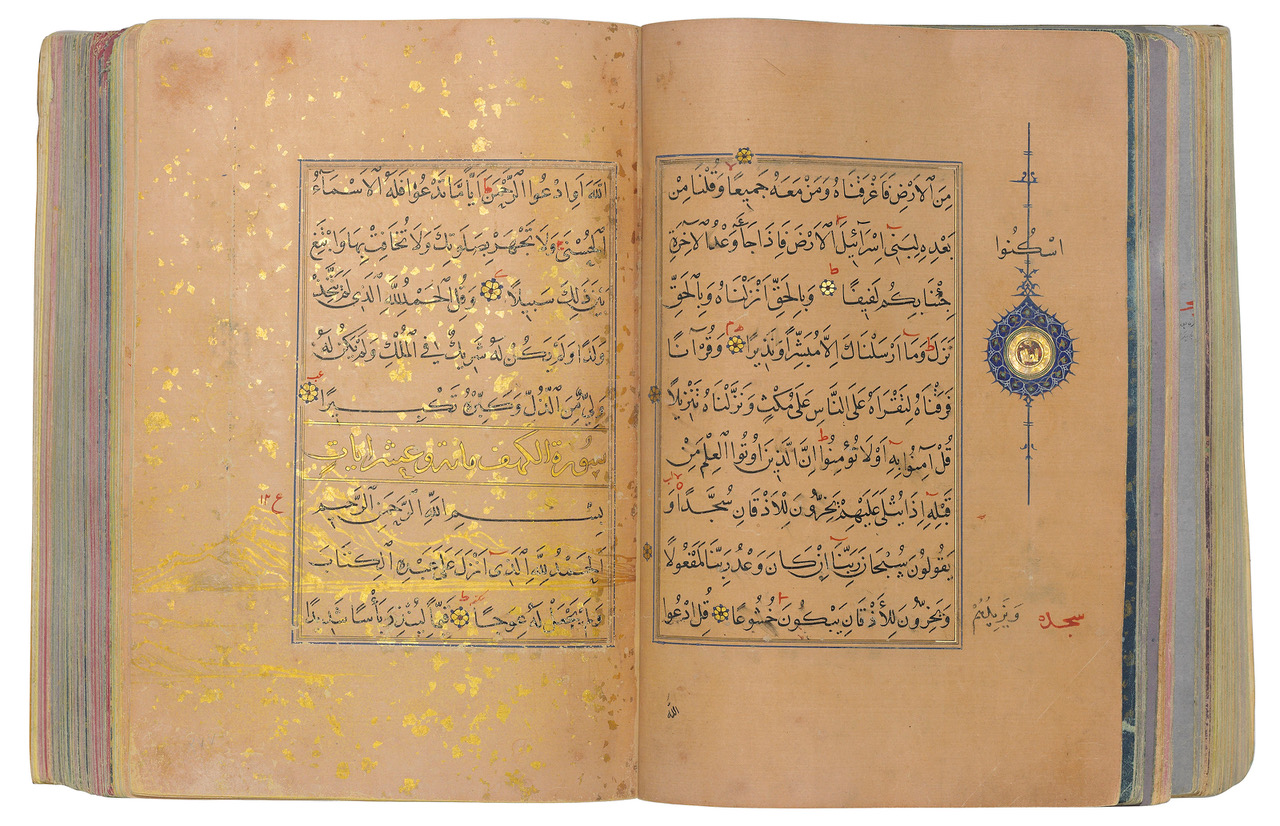 مِنَ الْاَرْضِ فَاَغْرَقْنَاهُ وَمَنْ مَعَهُ جَمِيعًا وَقُلْنَا مِنْ
بَعْدِهِ لِبَنِي اِسْرَآئِيلَ الْاَرْضَ فَاِذَا جَآءَ وَعْدُ الْاٰخِرَةِ
اسْكُنُوا
جِئْنَا بِكُمْ لَفِيفًا وَبِالْحَقِّ اَنْزَلْنَاهُ وَبِالْحَقِّ
نَزَلَ وَمَآ اَرْسَلْنَاكَ اِلَّا مُبَشِّرًا وَنَذِيرًا وَقُرْآنًا
فَرَقْنَاهُ لِتَقْرَاَهُ عَلَى النَّاسِ عَلَى مُكْثٍ وَنَزَّلْنَاهُ تَنْزِيلًا
قُلْ آمِنُوا بِهِ اَوْ لَا تُؤْمِنُوا اِنَّ الَّذِينَ اُوتُوا الْعِلْمَ مِنْ
قَبْلِهِ اِذَا يُتْلَى عَلَيْهِمْ يَخِرُّونَ لِلْاَذْقَانِ سُجَّدًا وَ
يَقُولُونَ سُبْحَانَ رَبِّنَآ اِنْ كَانَ وَعْدُ رَبِّنَا لَمَفْعُولًا
وَيَخِرُّونَ لِلْاَذْقَانِ يَبْكُونَ خُشُوعًا قُلِ ادْعُوا
وَيَزِيدُهُمْ
سجده
الله
اللّٰهَ اَوِ ادْعُوا الرَّحْمٰنَ اَيًّا مَّا تَدْعُوا فَلَهُ الْاَسْمَآءُ
الْحُسْنَى وَلَا تَجْهَرْ بِصَلٰوتِكَ وَلَا تُخَافِتْ بِهَا وَابْتَغِ
بَيْنَ ذٰلِكَ سَبِيلًا وَقُلِ الْحَمْدُ لِلّٰهِ الَّذِي لَمْ يَتَّخِذْ
وَلَدًا وَلَمْ يَكُنْ لَهُ شَرِيكٌ فِي الْمُلْكِ وَلَمْ يَكُنْ لَهُ
وَلِيٌّ مِّنَ الذُّلِّ وَكَبِّرْهُ تَكْبِيرًا
سُورَةُ الكهف مائة وعشر ايات
بِسْمِ اللّٰهِ الرَّحْمٰنِ الرَّحِيمِ
اَلْحَمْدُ لِلّٰهِ الَّذِي اَنْزَلَ عَلَى عَبْدِهِ الْكِتَابَ
وَلَمْ يَجْعَلْ لَهُ عِوَجًا قَيِّمًا لِيُنْذِرَ بَأْسًا شَدِيدًا